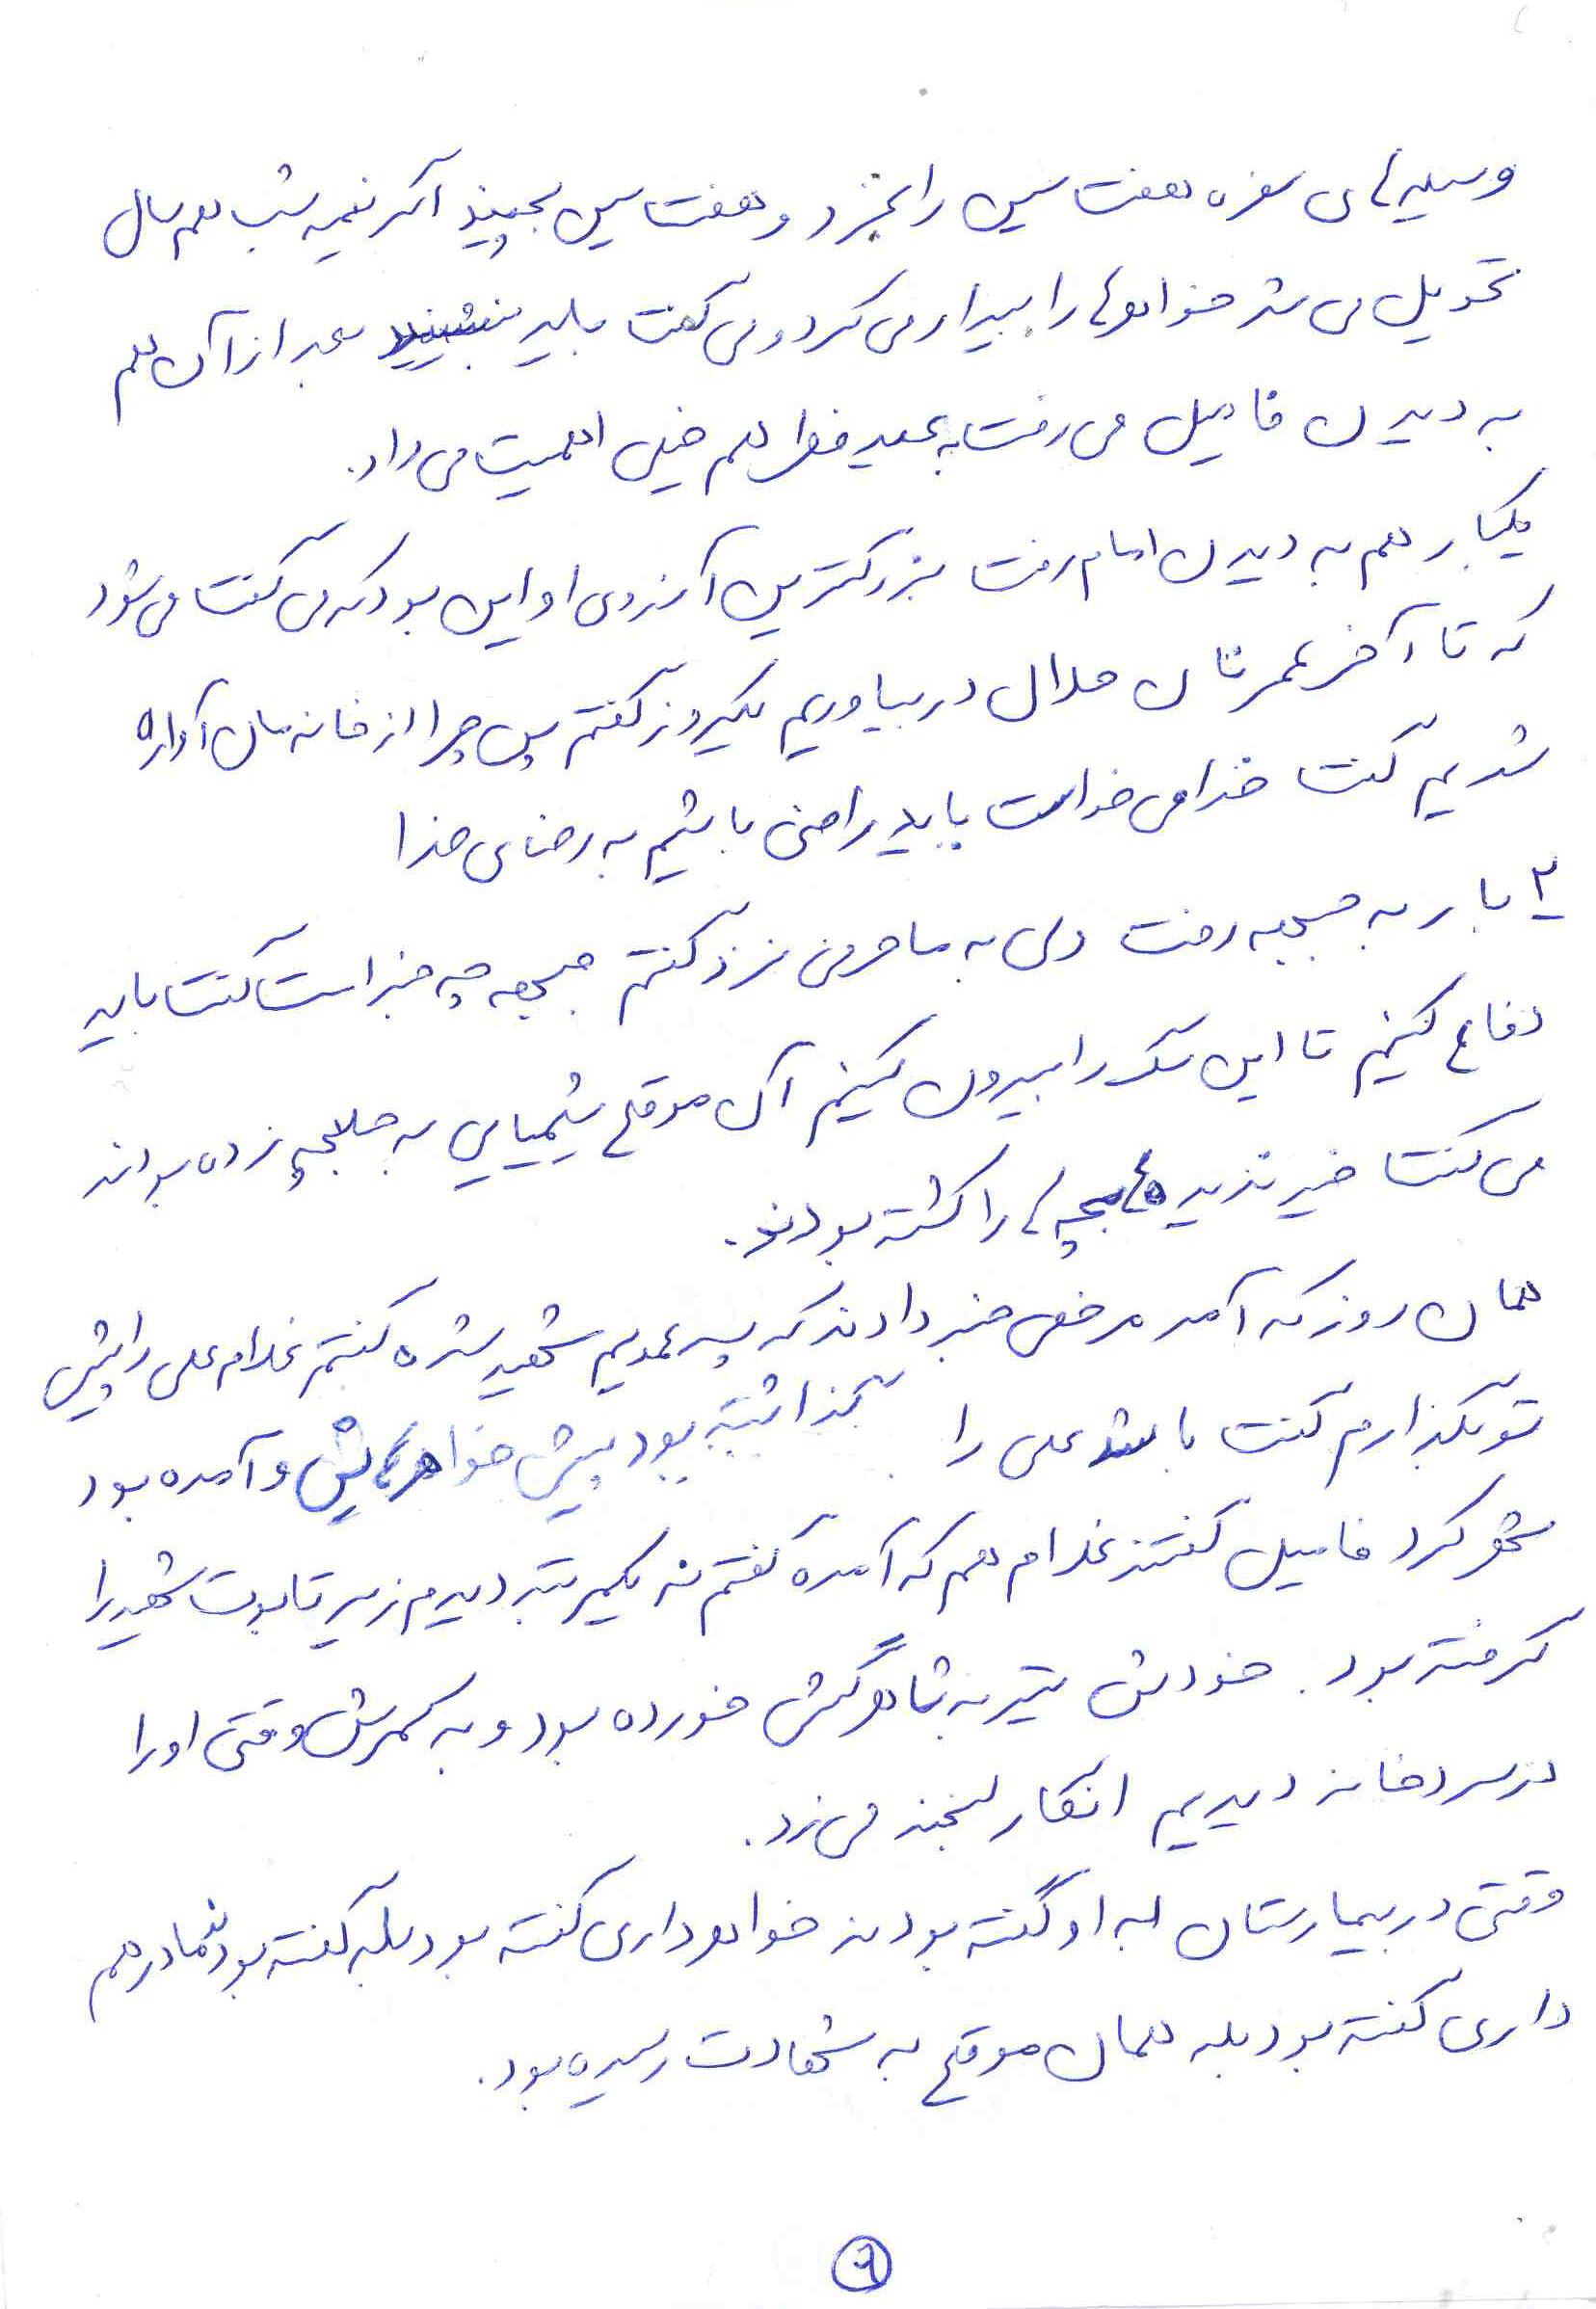 وسیله‌های سفره هفت سین را بخرد و هفت سین بچیند اگر نیمه شب هم سال
تحویل می شد خواهرها را بیدار می کرد و می گفت باید بنشینید بعد از آن هم
به دیدن فامیل می رفت به عید فطر هم خیلی اهمیت می داد.
یکبار هم به دیدن امام رفت بزرگترین آرزوی او این بود که می گفت می شود
که تا آخر عمر نان حلال دربیاوریم یکروز گفتم پس چرا از خانه مان آواره
شدیم گفت خدا می خواست باید راضی باشیم به رضای خدا
۲ بار به جبهه رفت ولی به ما حرفی نزد گفتم جبهه چه خبر است گفت باید
دفاع کنیم تا این سگ را بیرون کنیم آن موقع شیمیایی به حلبچه زده بودند
می گفت خیر ندیده‌ها بچه‌ها را کشته بودند.
همان روز که آمد مرخصی خبر دادند که پسر عمویم شهید شده گفتم غلام علی را پیش
تو بگذارم گفت باشد علی را گذاشته بود پیش خواهرهایش و آمده بود
شهر کرد فامیل گفتند غلام هم که آمده گفتم نه یکمرتبه دیدم زیر تابوت شهید را
گرفته بود. خودش تیر به شاهرگش خورده بود و به کمرش وقتی او را
در سردخانه دیدیم انگار لبخند می زد.
وقتی در بیمارستان به او گفته بودند خواهر داری گفته بود بله گفته بودند مادر هم
داری گفته بود بله همان موقع به شهادت رسیده بود.
۹